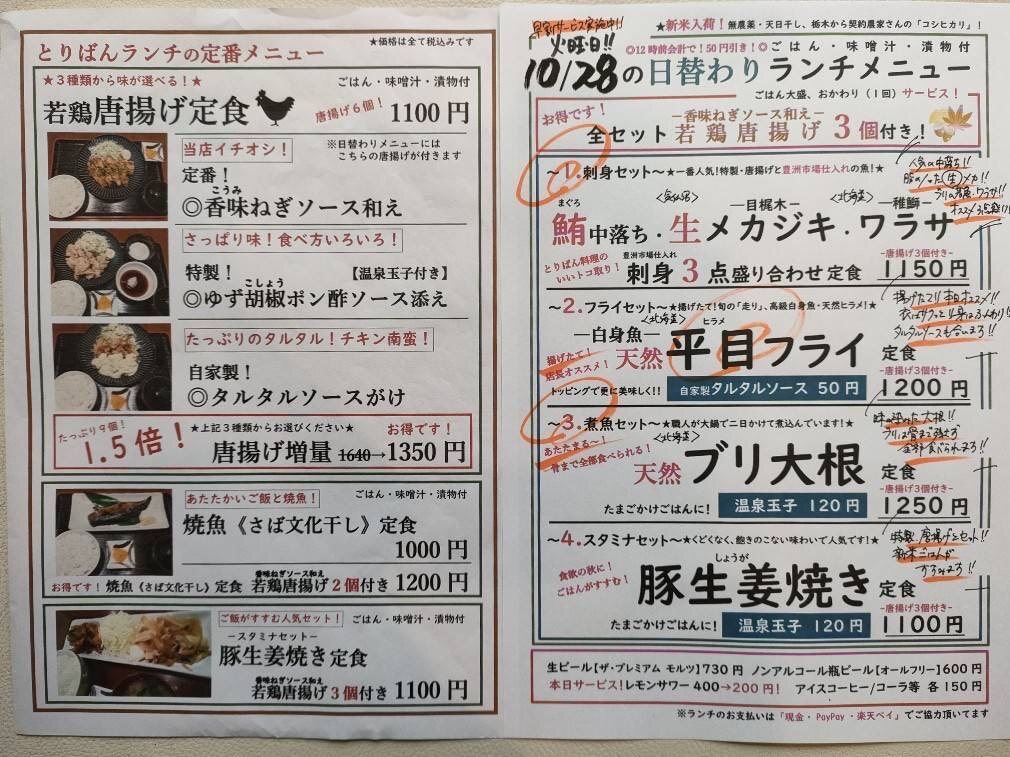 とりばんランチの定番メニュー
★価格は全て税込みです
★3種類から味が選べる！★
ごはん・味噌汁・漬物付
若鶏唐揚げ定食
唐揚げ6個！
1100円
当店イチオシ！
※日替わりメニューには
こちらの唐揚げが付きます
定番！
こうみ
◎香味ねぎソース和え
さっぱり味！食べ方いろいろ！
特製！
【温泉玉子付き】
こしょう
◎ゆず胡椒ポン酢ソース添え
たっぷりのタルタル！チキン南蛮！
自家製！
◎タルタルソースがけ
たっぷり9個！
1.5倍！
★上記3種類からお選びください★
お得です！
唐揚げ増量 1640→1350円
あたたかいご飯と焼魚！
ごはん・味噌汁・漬物付
焼魚《さば文化干し》定食
1000円
香味ねぎソース和え
お得です！焼魚《さば文化干し》定食 若鶏唐揚げ2個付き 1200円
ご飯がすすむ人気セット！
ごはん・味噌汁・漬物付
－スタミナセット－
豚生姜焼き定食
香味ねぎソース和え
若鶏唐揚げ3個付き 1100円
★新米入荷！無農薬・天日干し、栃木から契約農家さんの「コシヒカリ」！
早割サービス実施中!!
火曜日!!
◎12時前会計で！50円引き！◎
ごはん・味噌汁・漬物付
10/28の日替わりランチメニュー
ごはん大盛、おかわり（1回）サービス！
お得です！
－香味ねぎソース和え－
全セット若鶏唐揚げ3個付き！
～1.刺身セット～★一番人気！特製・唐揚げと豊洲市場仕入れの魚！★
人気の中落ち!!
オススメ3点盛り!!
まぐろ
―目梶木―
<北海道>
―稚鰤―
鮪中落ち・生メカジキ・ワラサ
とりばん料理の
いいトコ取り！
豊洲市場仕入れ
刺身3点盛り合わせ定食
-唐揚げ3個付き-
1150円
～2.フライセット～★揚げたて！旬の「走り」、高級白身魚・天然ヒラメ！★
揚げたて!!本日オススメ!!
タルタルソースも合いまっ!!
<北海道>
ヒラメ
―白身魚―
揚げたて！
店長オススメ！
天然 平目フライ 定食
-唐揚げ3個付き-
トッピングで更に美味しく!!
自家製タルタルソース 50円
1200円
～3.煮魚セット～★職人が大鍋で二日かけて煮込んでいます！★
味の染みた大根!!
ブリは骨まで残さず
全部食べられまっ!!
<北海道>
あたたまる～！
骨まで全部食べられる！
天然 ブリ大根 定食
-唐揚げ3個付き-
たまごかけごはんに！
温泉玉子 120円
1250円
～4.スタミナセット～★くどくなく、飽きのこない味わいで人気です！★
特製、唐揚げとセット!!
新米ごはんが
すすみまっ!!
しょうが
食欲の秋に！
ごはんがすすむ！
豚生姜焼き 定食
-唐揚げ3個付き-
たまごかけごはんに！
温泉玉子 120円
1100円
生ビール［ザ・プレミアム モルツ］730円 ノンアルコール瓶ビール［オールフリー］600円
本日サービス！レモンサワー 400→200円！ アイスコーヒー/コーラ等 各150円
※ランチのお支払いは「現金・PayPay・楽天ペイ」でご協力頂いてます